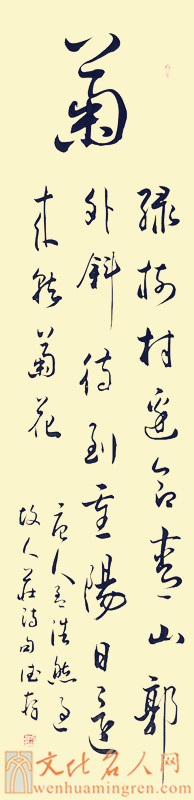 菊
綠樹村邊合青山郭
外斜待到重陽日還
來就菊花
唐人孟浩然過
故人莊詩句
文化名人网
wenhuamingren.com